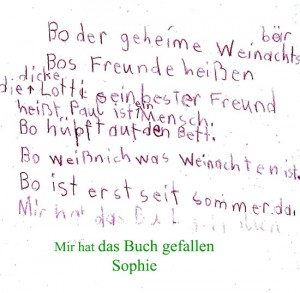 Bo der geheime Weinachtsbär
Bos Freunde heißen
die dicke Lotti sein bester Freund
heißt Paul ist ein Mensch.
Bo hüpft auf den Bett.
Bo weißnich was Weinachten ist.
Bo ist erst seit sommer.da.
Mir hat das Bu
Mir hat das Buch gefallen
Sophie